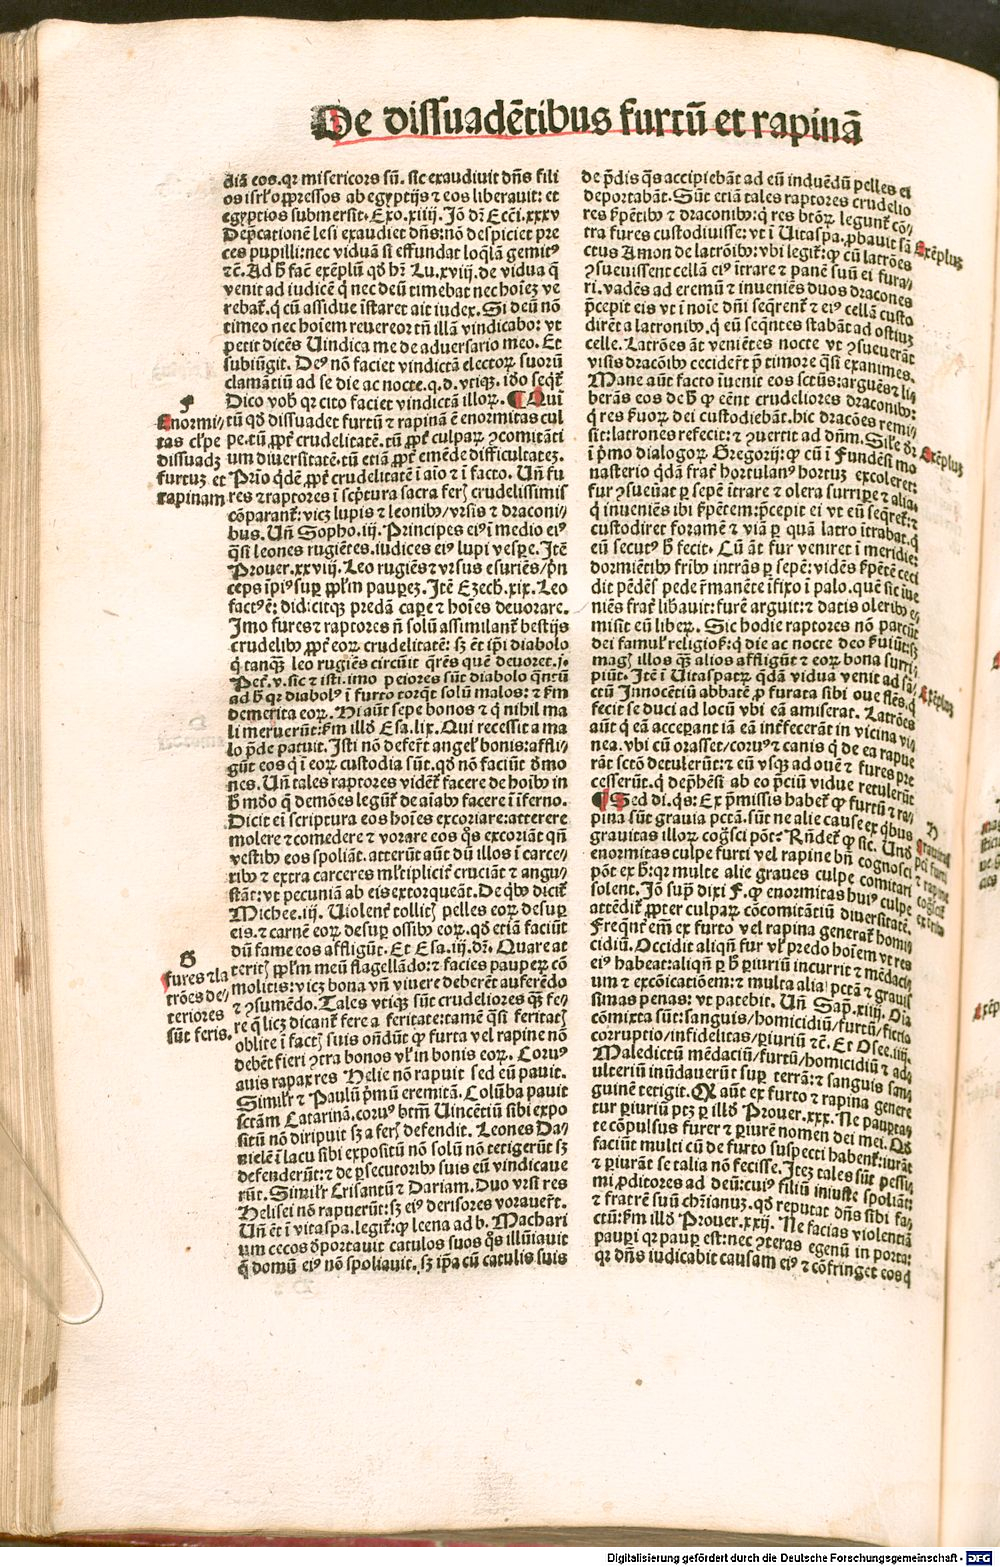 De dissuadētibus furtū et rapinā
diā eos. qr misericors sū. sic exaudiuit dn̄s fili
os isrl' oppressos ab egyptijs ⁊ eos liberauit: et
egyptios submersit. Exo. xiiij. Jō dr̄ Ecci. xxxv
Dep̄cationē lesi exaudiet dn̄s: nō despiciet pre
ces pupilli: nec viduā si effundat loq̄lā gemitꝰ
⁊c̄. Ad h̄ fac̄ exēplū qd̄ hr̄ Lu. xviij. de vidua q̄
venit ad iudicē q̄ nec deū timebat nec hoīez ve
rebat͛. q̄ cū assidue īstaret ait iudex. Si deū nō
timeo nec hoīem reuereor tn̄ illā vindicabo: vt
petit dicēs Uindica me de aduersario meo. Et
subiūgit. Deꝰ nō faciet vindictā electoꝝ suorū
clamātiū ad se die ac nocte. q. d. vtiqꝫ. iō seq̄t͛
Dico vob̄ qr cito faciet vindictā illoꝝ. ¶ Qui
F
Enormi-
tas cl'pe
dissuadꝫ
furtuꝫ et
rapinam
tū qd̄ dissuadet furtū ⁊ rapinā ē enormitas cul
pe. tū ꝓpt͛ crudelitatē. tū ꝓpt͛ culpaꝝ ꝯcomitāti
um diuersitatē. tū etiā ꝓpt͛ emēde difficultateꝫ.
Prīo q̄dē ꝓpt͛ crudelitatē ī aīo ⁊ ī facto. Un̄ fu
res ⁊ raptores ī sc̄ptura sacra fer̄ crudelissimis
cōparant͛: vicꝫ lupis ⁊ leonib᷒/ vrsis ⁊ draconi/
bus. Un̄ Sopho. iij. Principes eiꝰ ī medio eiꝰ
q̄si leones rugiētes. iudices eiꝰ lupi vesꝑe. Itē
Prouer. xxviij. Leo rugiēs ⁊ vrsus esuriēs/ p̄n
ceps īpiꝰ suꝑ pp̄lm pauꝑeꝫ. Itē Ezech. xix. Leo
factꝰ ē: didicitqꝫ predā caꝑe ⁊ hoīes deuorare.
Imo fures ⁊ raptores n̄ solū assimilant͛ bestijs
crudelib᷒ ꝓpt͛ eoꝝ crudelitatē: sꝫ ēt ip̄i diabolo
q̄ tanqꝫ leo rugiēs circuit q̄rēs quē deuoret. j.
Pet͛. v. sic ⁊ isti. imo peiores sūt diabolo q̄ntū
ad h̄ qr diabolꝰ ī furto torq̄t solū malos: ⁊ s̄m
demerita eoꝝ. Hi aūt sepe bonos ⁊ q̄ nihil ma
li meruerūt: s̄m illd̄ Esa. lix. Qui recessit a ma
lo p̄de patuit. Isti nō defer̄t angel' bonis: affli/
gūt eos q̄ ī eoꝝ custodia sūt. qd̄ nō faciūt demo
nes. Un̄ tales raptores vidēt͛ facere de hoīb᷒ in
h̄ mūdo q̄ demōes legūt͛ de aīab᷒ facere ī īferno.
Dicit ei scriptura eos hoīes excoriare: atterere
molere ⁊ comedere ⁊ vorare eos q̄s excoriāt qn̄
vestib᷒ eos spoliāt. atterūt aūt dū illos ī carce/
rib᷒ ⁊ extra carceres ml'tiplicit͛ cruciāt ⁊ angu/
stāt: vt pecuniā ab eis extorqueāt. De q̄b᷒ dicit͛
Michee. iij. Uiolent͛ tollit͛ pelles eoꝝ desuꝑ
eis. ⁊ carnē eoꝝ desuꝑ ossib᷒ eoꝝ. qd̄ etiā faciūt
dū fame eos affligūt. Et Esa. iij. dr̄. Quare at
G
fures ⁊ la
trōes de/
teriores
sūt feris.
terit͛ pp̄lm meū flagellādo: ⁊ facies pauperꝝ cō
molitis: vicꝫ bona vn̄ viuere deberēt auferēdo
⁊ ꝯsumēdo. Tales vtiqꝫ sūt crudeliores qꝫ fe/
re q̄ licꝫ dicant͛ fere a feritate: tamē q̄si feritat͛
oblite ī fact͛ suis ondūt ꝙ furta vel rapine nō
debēt fieri ꝯtra bonos vl' in bonis eoꝝ. Coruꝰ
auis rapax res Helie nō rapuit sed eū pauit.
Simil'r ⁊ Paulū p̄mū eremitā. Colūba pauit
sctām Catarinā. coruꝰ btm̄ Uincētiū sibi expo
sitū nō diripuit sꝫ a fer͛ defendit. Leones Da/
nielē ī lacu sibi expositū nō solū nō tetigerūt sꝫ
defenderūt: ⁊ de ꝑsecutorib᷒ suis eū vindicaue
rūt. Simil'r Crisantū ⁊ Dariam. Duo vrsi res
Helisei nō rapuerūt: sꝫ eiꝰ derisores vorauer̄t.
Un̄ ēt ī vitaspa. legit͛: ꝙ leena ad b. Machari
um cecos dportauit catulos suos q̄s illūiauit
q̄ domū eiꝰ nō spoliauit. sꝫ ip̄a cū catulis suis
de p̄dis q̄s accipiebāt ad eū induēdū pelles ei
deportabāt. Sūt etiā tales raptores crudelio
res s̄pētib᷒ ⁊ draconib᷒: q̄ res btōꝝ legunt͛ cō/
tra fures custodiuisse: vt ī Uitaspa. ꝓbauit sā
Exēpluꝫ
ctus Amon de latrōib᷒: vbi legit͛: ꝙ cū latrōes
ꝯsueuissent cellā eiꝰ ītrare ⁊ panē suū ei fura/
ri. vadēs ad eremū ⁊ inueniēs duos dracones
p̄cepit eis vt ī noīe dn̄i seq̄rent͛ ⁊ eiꝰ cellā custo
dirēt a latronib᷒. q̄ eū seq̄ntes stabāt ad ostiuꝫ
celle. Latrōes āt veniētes nocte vt ꝯsueuerāt
visis dracōib᷒ cecider̄t p̄ timore q̄si exanimes.
Mane aūt facto īuenit eos sctūs: arguēs ⁊ li/
berās eos de h̄ ꝙ eēnt crudeliores draconib᷒:
q̄ res s̄uoꝝ dei custodiebāt. hic dracōes remi/
sit: latrones refecit: ⁊ ꝯuertit ad dn̄m. Sil'e dr̄
Exēpluꝫ
ī p̄mo dialogoꝝ Gregorij: ꝙ cū ī Fundēsi mo
nasterio q̄dā frat͛ hortulanꝰ hortuꝫ excoleret:
fur ꝯsueūat ꝑ sepē ītrare ⁊ olera surripe ⁊ alia.
q̄ inueniēs ibi s̄pētem: p̄cepit ei vt eū seq̄ret͛: ⁊
custodiret foramē ⁊ viā ꝑ quā latro ītrabat. q̄
eū secutꝰ h̄ fecit. Cū āt fur veniret ī meridie:
dormiētib᷒ frib᷒ intrās ꝑ sepē: vidēs s̄pētē ceci
dit pēdēs pede r̄manēte īfixo ī palo. quē sic īue
niēs frat͛ lib̄auit: furē arguit: ⁊ datis olerib᷒ e/
misit eū liber̄. Sic hodie raptores nō parcūt
dei famul' religios͛: q̄ die ac nocte deo s̄uiūt: sꝫ
mag͛ illos qꝫ alios affligūt ⁊ eoꝝ bona surri/
piūt. Itē ī Uitaspatꝝ q̄dā vidua venit ad sā/
Exēpluꝫ
ctū Innocētiū abbatē ꝓ furata sibi oue flēs. q̄
fecit se duci ad locū vbi eā amiserat. Latrōes
aūt q̄ eā acceperant iā eā int͛fecerāt in vicina vi/
nea. vbi cū orasset/ coruꝰ ⁊ canis q̄ de ea rapue
rāt sctō detulerūt: ⁊ eū vsqꝫ ad ouē ⁊ fures pre
cesserūt. q̄ dep̄hēsi ab eo p̄ciū vidue retulerūt
¶ Sed di. q̄s: Ex p̄missis habet͛ ꝙ furtū ⁊ ra/
H
grauitas
pcī furti
⁊ rapine
cog͛scit͛
ex trib᷒
pina sūt grauia pctā. sūt ne alie cause ex q̄bus
grauitas illoꝝ coḡsci pōt? Rn̄det͛ ꝙ sic. Und̄
enormitas culpe furti vel rapine bn̄ cognosci
pōt ex h̄: qr multe alie graues culpe comitari
solent. Jō supͣ dixi F. ꝙ enormitas huiꝰ culpe
attēdit͛ ꝓpter culpaꝝ cōcomitātiū diuersitatē.
Freq̄nt͛ em̄ ex furto vel rapina generat͛ homi/
cidiū. Occidit aliqn̄ fur vl' predo hoīem vt res
eiꝰ habeat: aliqn̄ ꝑ h̄ ꝑiuriū incurrit ⁊ mēdaci/
um ⁊ excōicatiōem: ⁊ multa alia pctā ⁊ grauis
simas penas: vt patebit. Un̄ Sap̄. xiiij. Oīa
cōmixta sūt: sanguis/ homicidiū/ furtū/ fictio
corruptio/ infidelitas/ ꝑiuriū ⁊c̄. Et Osee. iiij.
Maledictū mēdaciū/ furtū/ homicidiū ⁊ adu
ulteriū inūdauerūt suꝑ terrā: ⁊ sanguis san/
guinē tetigit. Qꝫ aūt ex furto ⁊ rapina genere
tur ꝑiuriū ptꝫ ꝑ illd̄ Prouer. xxx. Ne pauꝑtas
te cōpulsus furer ⁊ ꝑiurē nomen dei mei. Qd̄
faciūt multi cū de furto suspecti habent͛: iurāt
⁊ ꝑiurāt se talia nō fecisse. Iteꝫ tales sūt pessi/
mi ꝓditores ad deū: cuiꝰ filiū iniuste spoliāt:
⁊ fratrē suū chr̄ianuꝫ. qd̄ reputat dn̄s sibi fa/
ctū: s̄m illd̄ Prouer. xxij. Ne facias violentiā
pauꝑi qr pauꝑ est: nec ꝯteras egenū in porta:
qr dn̄s iudicabit causam eiꝰ ⁊ cōfringet eos q̄
Digitalisierung gefördert durch die Deutsche Forschungsgemeinschaft - DFG